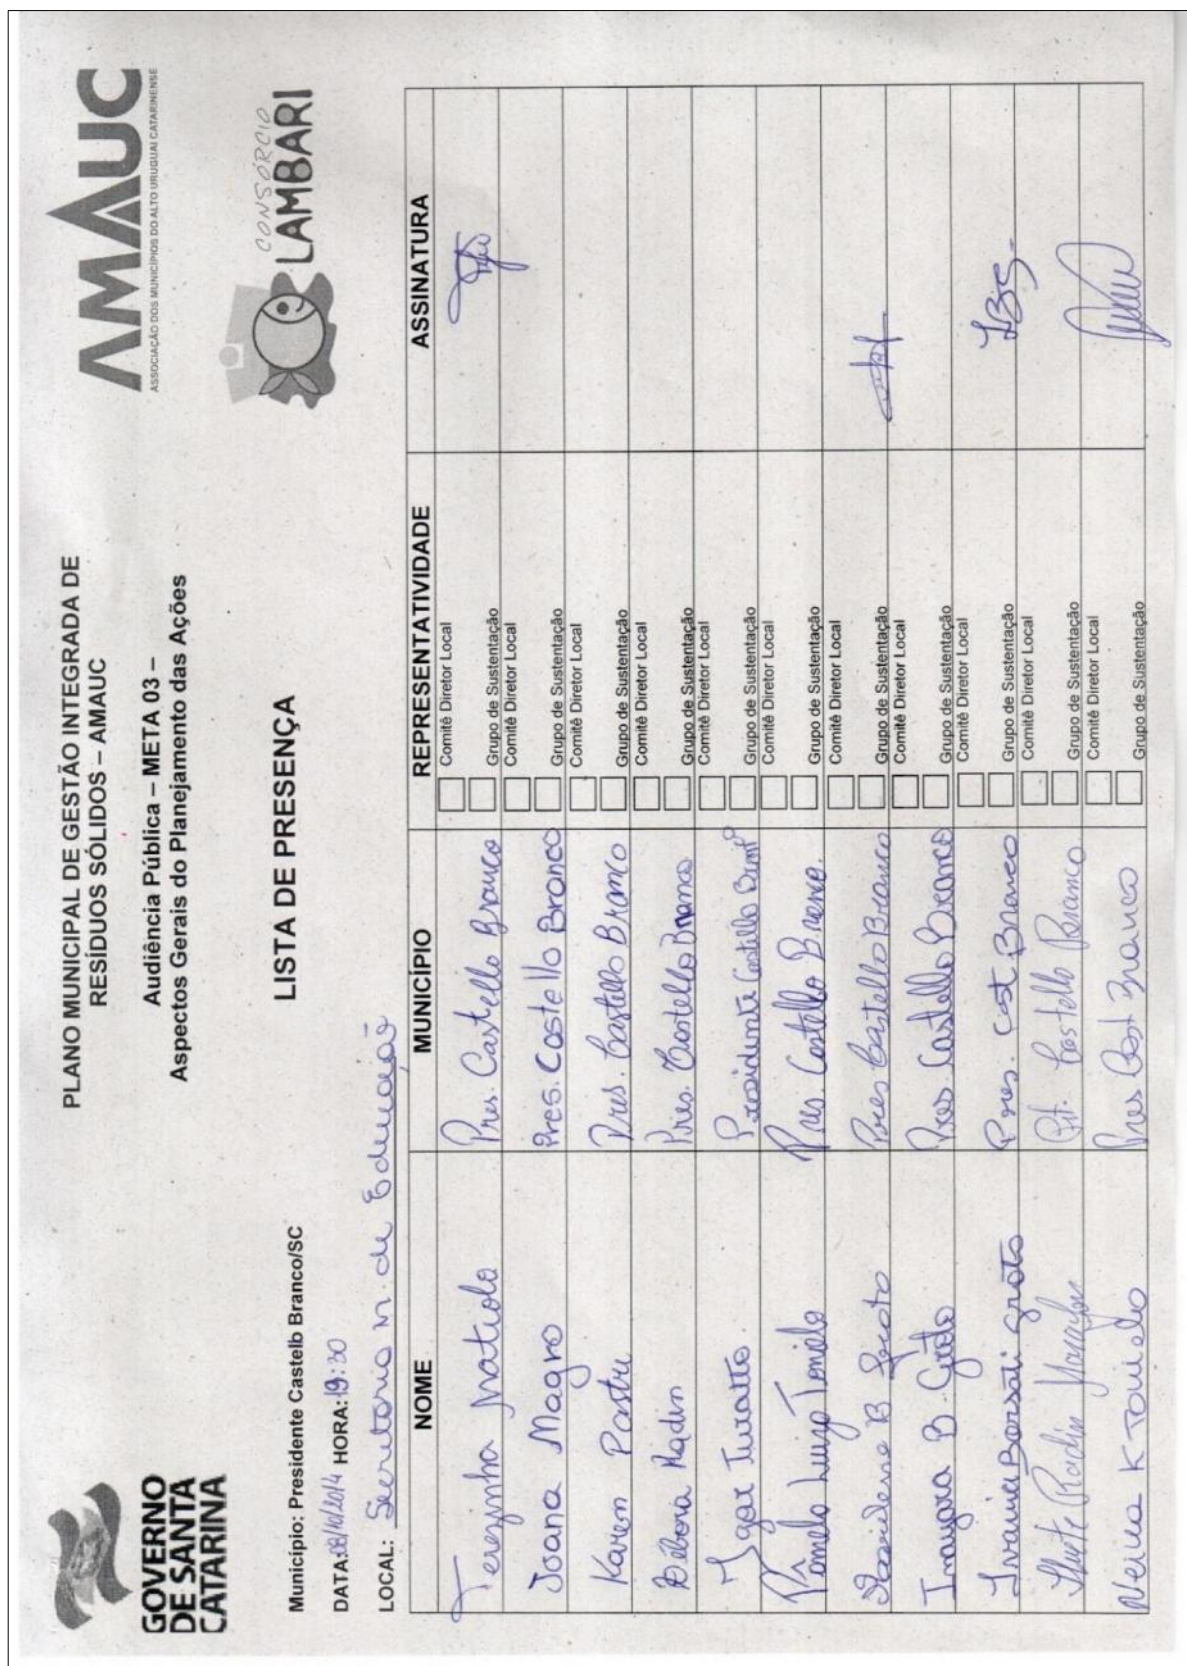 GOVERNO
DE SANTA
CATARINA
PLANO MUNICIPAL DE GESTÃO INTEGRADA DE
RESÍDUOS SÓLIDOS – AMAUC
Audiência Pública – META 03 –
Aspectos Gerais do Planejamento das Ações
AMAUC
ASSOCIAÇÃO DOS MUNICÍPIOS DO ALTO URUGUAI CATARINENSE
CONSÓRCIO
LAMBARI
LISTA DE PRESENÇA
Município: Presidente Castelo Branco/SC
DATA: HORA: 19:30
LOCAL: M. de Educação
NOME MUNICÍPIO REPRESENTATIVIDADE ASSINATURA
Terezinha Pres. Castello Branco Comitê Diretor Local
Grupo de Sustentação
Joana Magro Pres. Castello Branco Comitê Diretor Local
Grupo de Sustentação
Karem Pastre Pres. Castello Branco Comitê Diretor Local
Grupo de Sustentação
Débora Radin Pres. Castello Branco Comitê Diretor Local
Grupo de Sustentação
Igor Turatto Presidente Castello Comitê Diretor Local
Grupo de Sustentação
Pâmela Luiza Toniolo Pres. Castello Branco. Comitê Diretor Local
Grupo de Sustentação
B Pres Castello Branco Comitê Diretor Local
Grupo de Sustentação
B. Pres. Castello Branco Comitê Diretor Local
Grupo de Sustentação
Borsati Pres. Cast. Branco Comitê Diretor Local
Grupo de Sustentação
Radin Castello Branco Comitê Diretor Local
Grupo de Sustentação
Neiva K Pres Cast Branco Comitê Diretor Local
Grupo de Sustentação